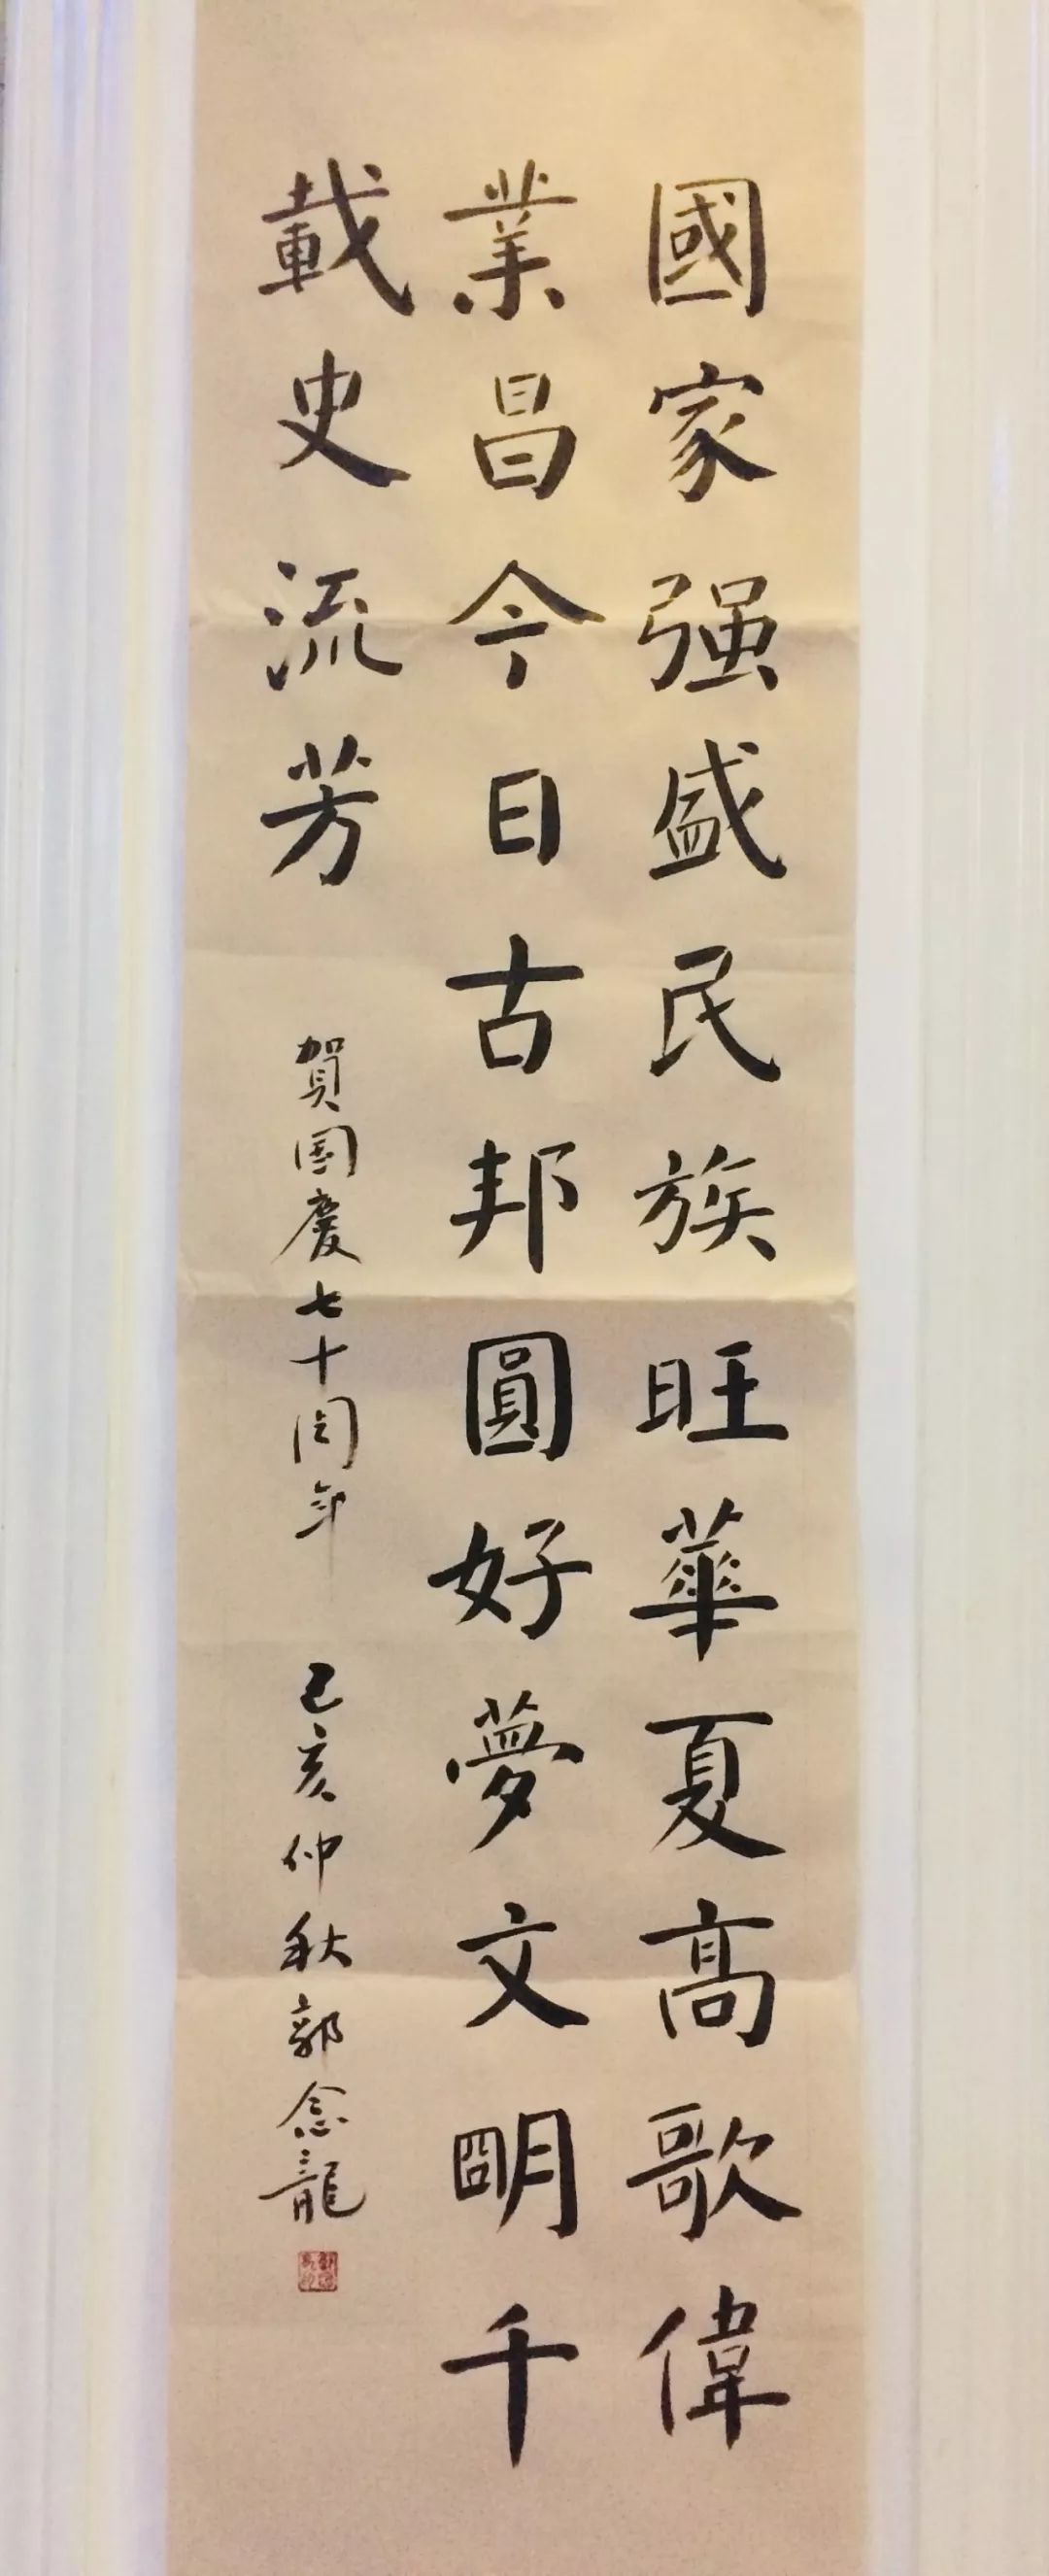 國家强盛民族旺華夏高歌偉
業昌今日古邦圓好夢文明千
載史流芳
賀国慶七十周年 己亥仲秋郭念龍